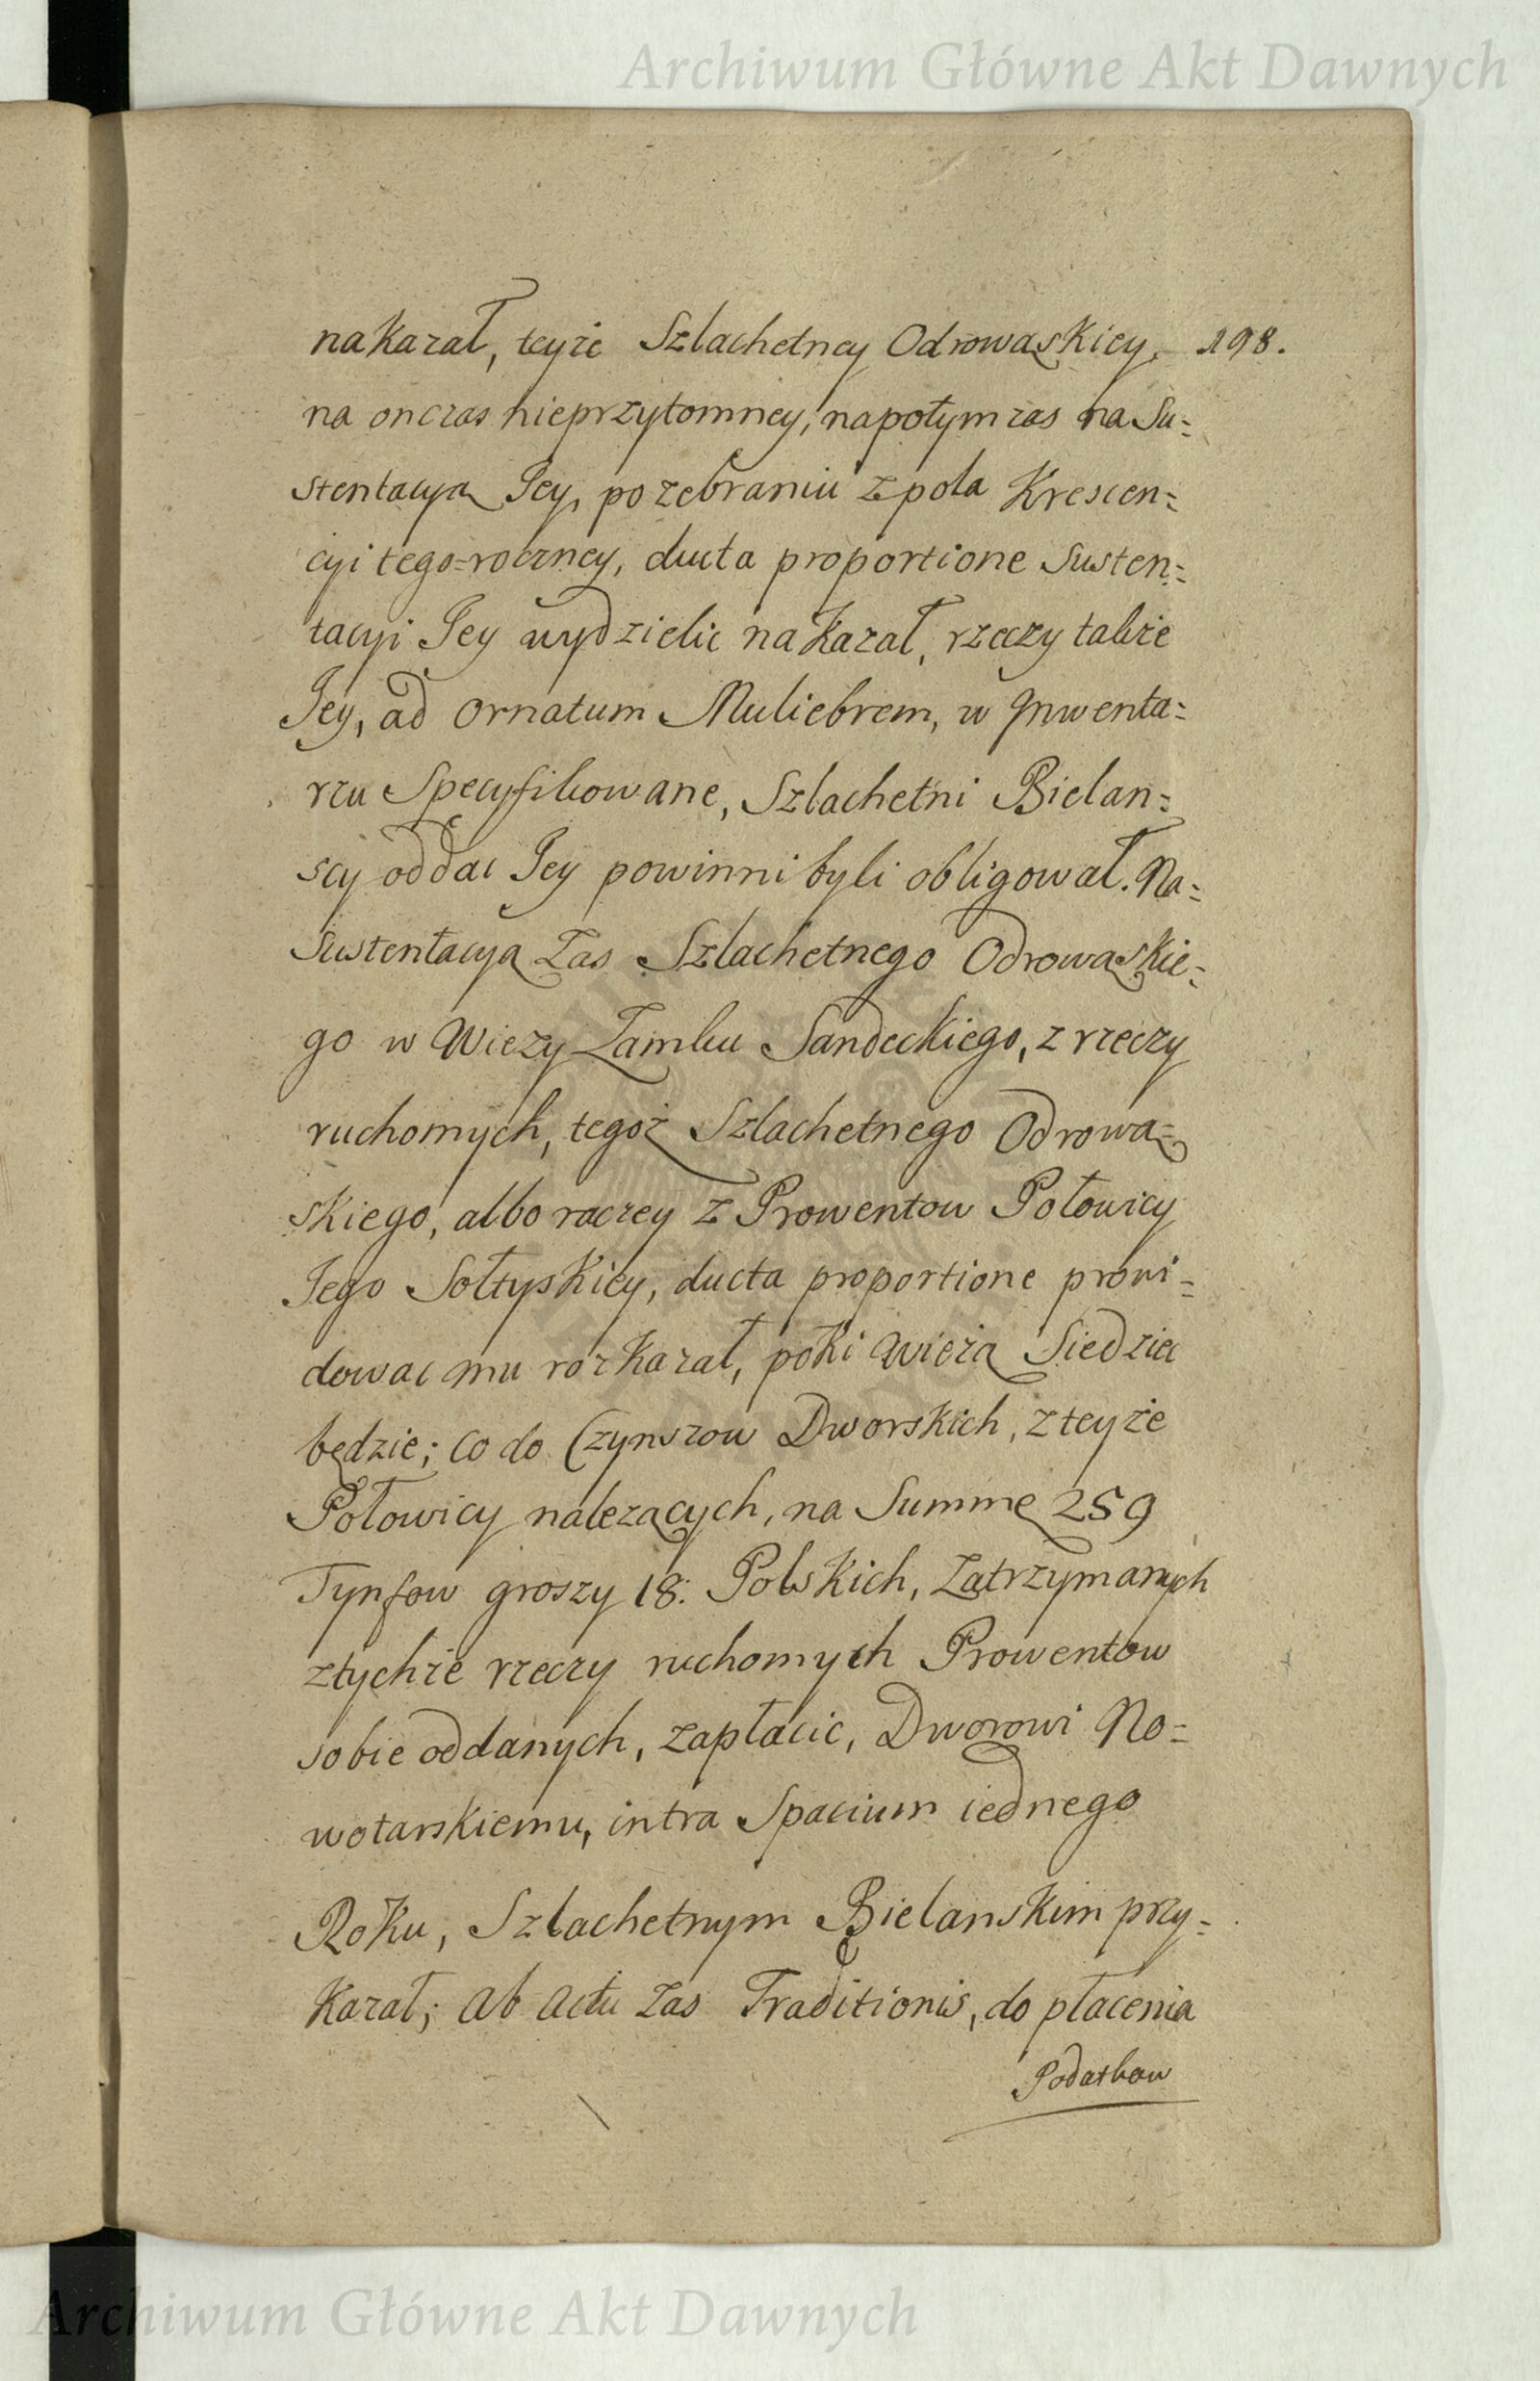 Archiwum Główne Akt Dawnych
nakazał, teyże Szlachetney Odrowąskiey, 198.
na onczas nieprzytomney, napotym zas na Su=
stentacyą Jey, po zebraniu z pola Krescen=
cyi tego=roczney, ducta proportione Susten=
tacyi Jey wydzielic nakazał, rzeczy także
Jey, ad ornatum Muliebrem, w Jnwenta=
rzu Specyfikowane, Szlachetni Bielan=
scy oddac Jey powinni byli obligował. Na=
Sustentacyą Zas Szlachetnego Odrowąskie=
go w Wiezy Zamku Sandeckiego, z rzeczy
ruchomych, tegoż Szlachetnego Odrową=
skiego, albo raczey z Prowentow Połowicy
Jego Sołtyskiey, ducta proportione prowi=
dowac mu rozkazał, poki Wieżą Siedziec
będzie; co do Czynszow Dworskich, z teyże
Połowicy nalezących, na Summę 259
Tynfow groszy 18: Polskich, Zatrzymanych
z tychże rzeczy ruchomych Prowentow
sobie oddanych, zapłacic, Dworowi No=
wotarskiemu, intra Spacium iednego
Roku, Szlachetnym Bielanskim przy=
Kazał; ab actu Zas Traditionis, do płacenia
Podatkow
Archiwum Główne Akt Dawnych